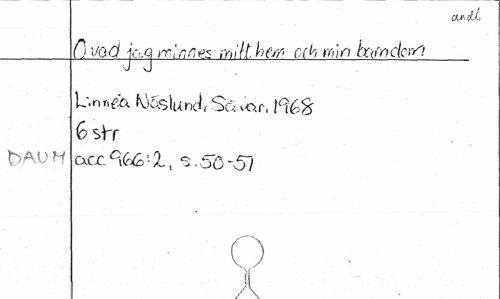 andl
O vad jag minnes mitt hem och min barndom
Linnéa Näslund, Sävar, 1968
6 str
DAUM acc 966:2, s. 50-51